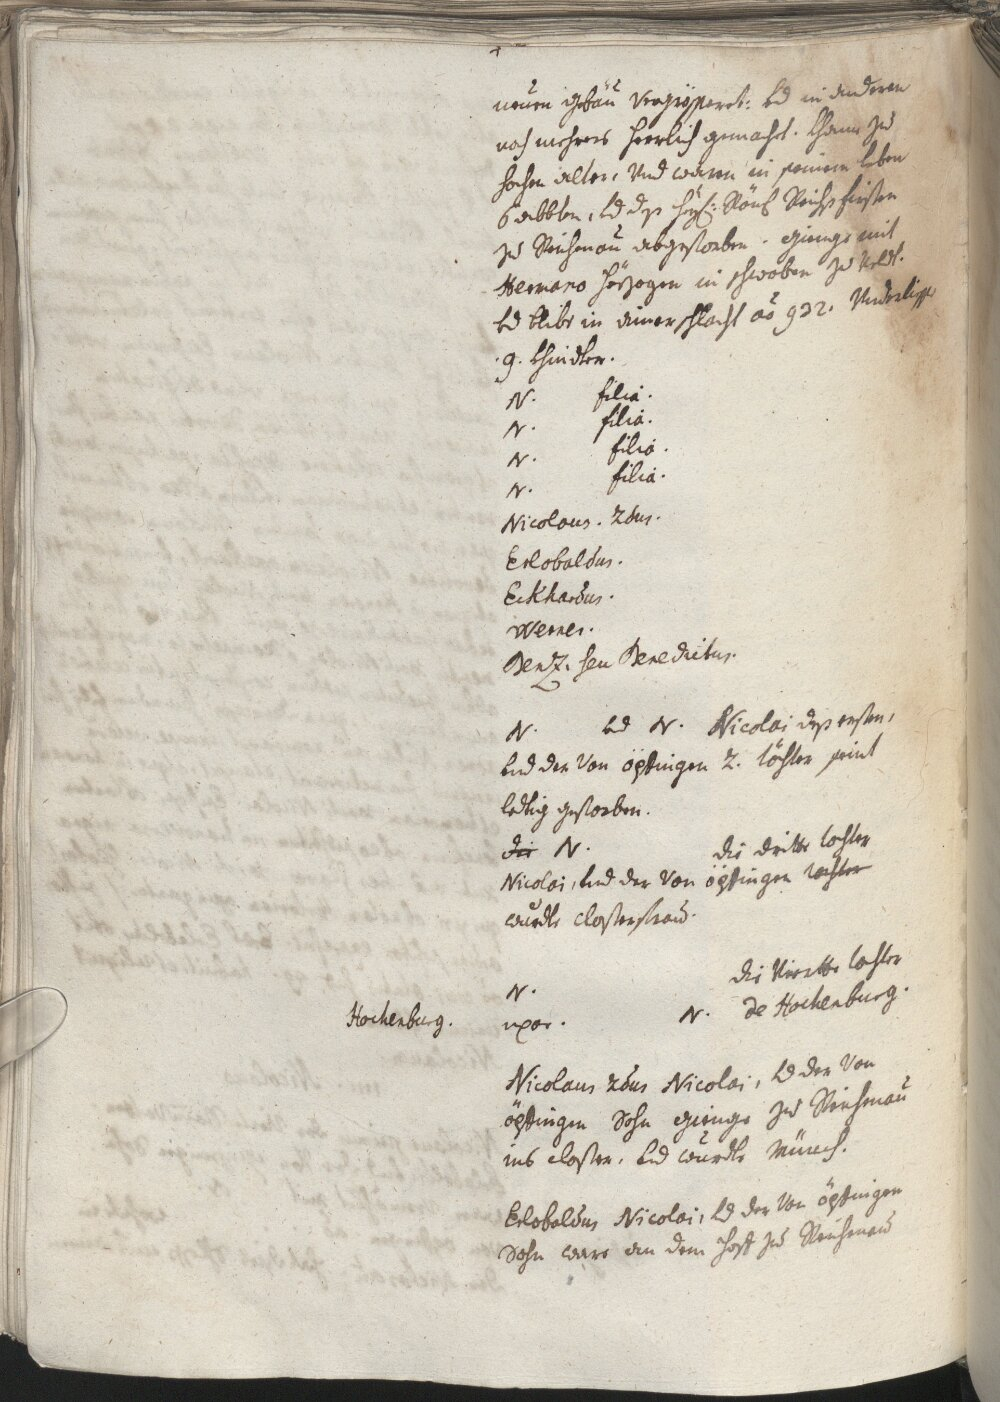 neuen gebäu vergrössert: Vnd in anderen
noch mehrers herrlich gemacht. Kame zu
hochen alter, Vnd waren in seinem leben
6 abbten, Vnd dess Röm Reichsfürsten
zu Reichenau abgestorben. gienge mit
Hermano Hörzogen in schwaben zu Veldt.
Vnd blibe in einer schlacht aõ 932. Vnderliess
.9. Khinder.
N. filia.
N. filia.
N. filia.
N. filia.
Nicolaus. 2dus.
Erlobaldus.
Eckhardus.
Werner.
Bentz. seu Benedictus.
N. Vnd N. Nicolai dess ersten,
Vnd der Von öpfingen 2. töchter seint
ledig gestorben.
die N. die dritte tochter
Nicolai, Vnd der Von öpfingen tochter
wurdte closterfrauw.
N. die Vierte tochter
Hochenburg. uxor. N. de Hochenburg.
Nicolaus 2dus Nicolai, Vnd der Von
öpfingen Sohn gienge zu Reichenau
ins closter, Vnd wurdte Münch.
Erlobaldus Nicolai, Vnd der Von öpfingen
Sohn ware an dem hoff zu Reichenauw